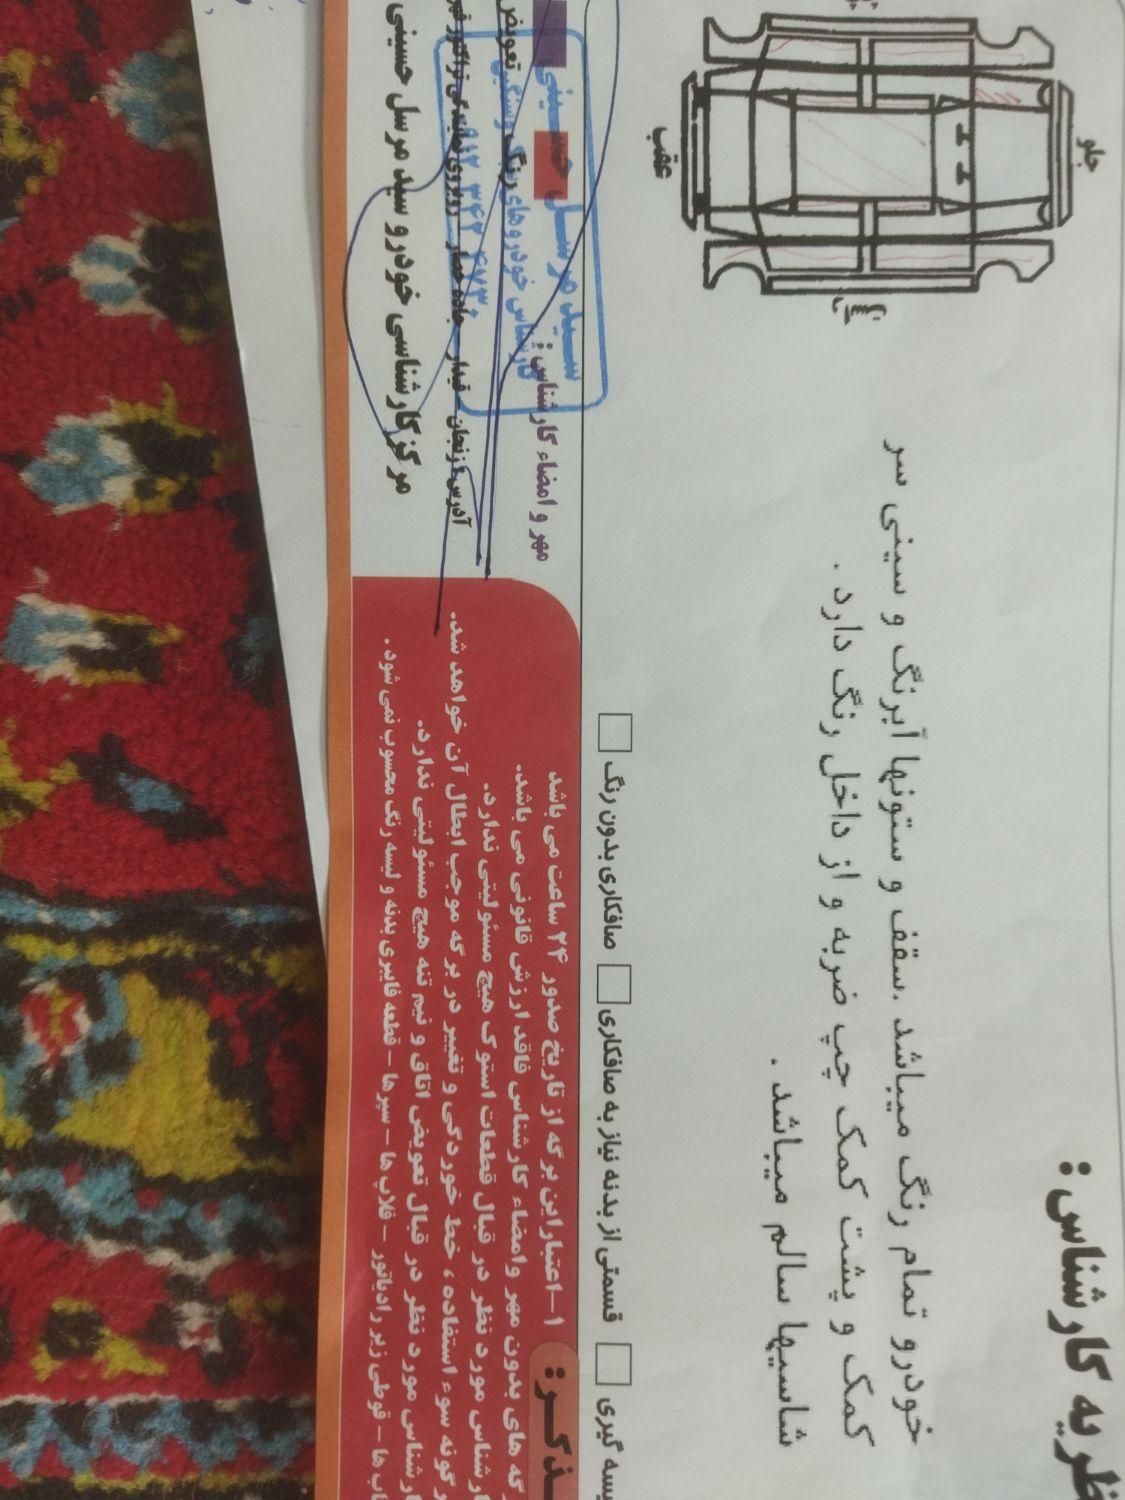 نظریه کارشناس :
خودرو تمام رنگ میباشد .سقف و ستونها آبرنگ و سینی سر
کمک و پشت کمک چپ ضربه و از داخل رنگ دارد .
شاسیها سالم میباشد .
جلو
عقب
لیسه گیری
قسمتی از بدنه نیاز به صافکاری
صافکاری بدون رنگ
تذکر:
۱-اعتبار این برگه از تاریخ صدور ۲۴ ساعت می باشد
گه های بدون مهر وامضاء کارشناس فاقد ارزش قانونی می باشد.
ارشناس مورد نظر در قبال قطعات استوک هیچ مسئولیتی ندارد.
رگونه سوء استفاده، خط خوردگی و تغییر در برگه موجب ابطال آن خواهد شد.
ارشناس مورد نظر در قبال تعویض اتاق و نیم تنه هیچ مسئولیتی ندارد.
اب ها - قوطی زیر رادیاتور - فلاپ ها - سپرها - قطعه فایبری بدنه و لیسه رنگ محسوب نمی شود.
مهر و امضاء کارشناس :
سید مرسل حسینی
کارشناس خودروهای
رنگ
تعویض
آدرس : زنجان - قیدار - جاده حصار - روبروی نمایندگی تراکتور
مرکز کارشناسی خودرو سید مرسل حسینی